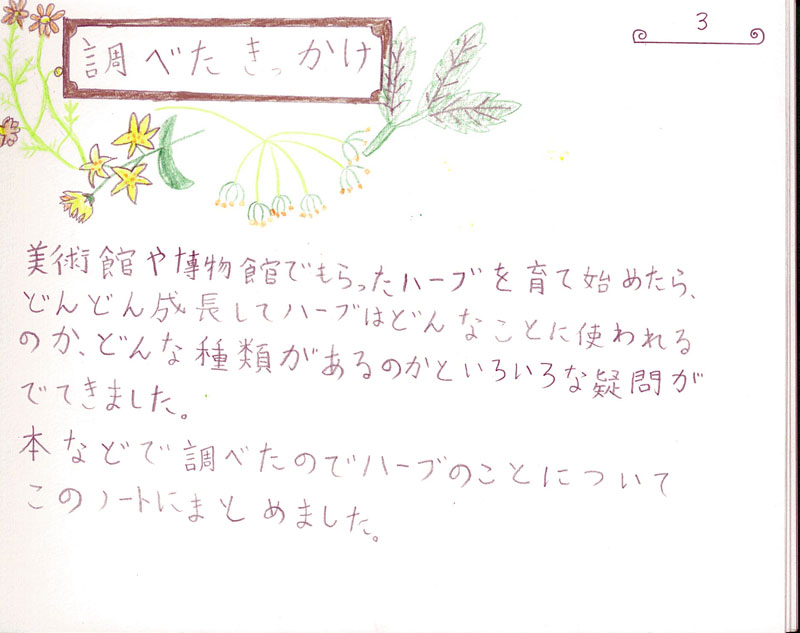 調べたきっかけ
3
美術館や博物館でもらったハーブを育て始めたら、
どんどん成長してハーブはどんなことに使われる
のか、どんな種類があるのかといろいろな疑問が
でてきました。
本などで調べたのでハーブのことについて
このノートにまとめました。